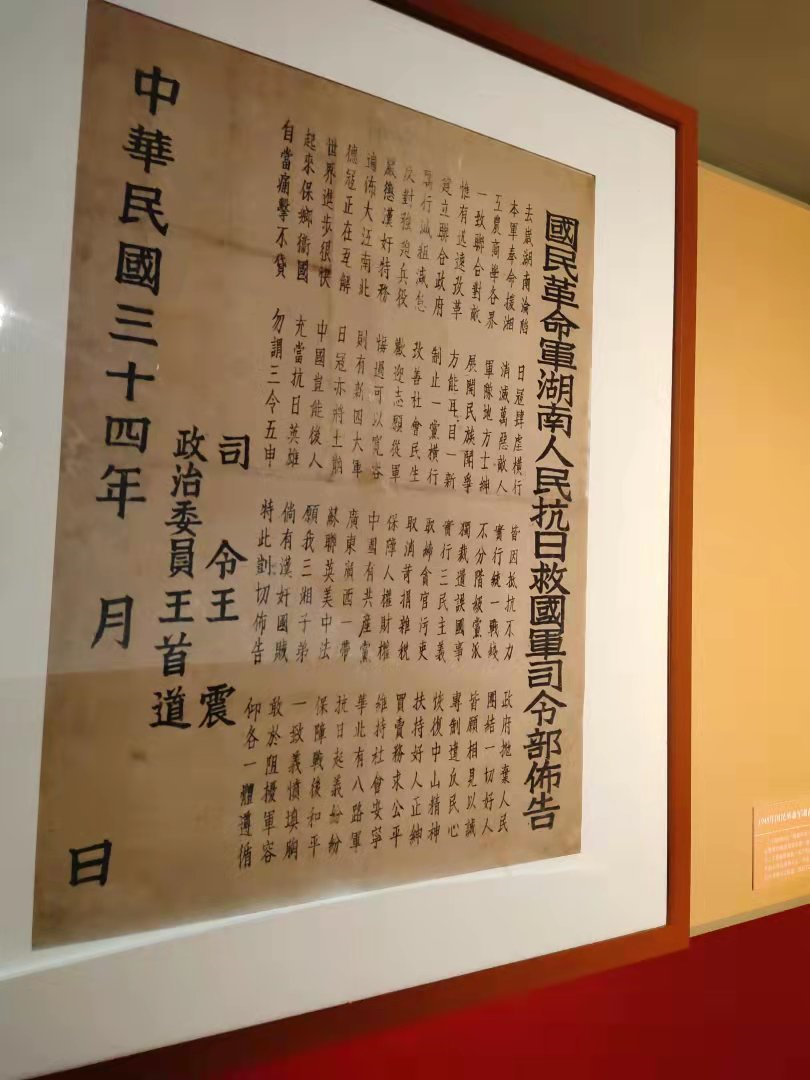 國民革命軍湖南人民抗日救國軍司令部佈告
去歲湖南淪陷 日寇肆虐橫行 皆因抵抗不力 政府拋棄人民
本軍奉命援湘 消滅萬惡敵人 實行統一戰綫 團結一切好人
工農商學各界 軍隊地方士紳 不分階級黨派 皆願相見以誠
一致聯合對敵 展開民族鬪爭 獨裁擅誤國事 專制違反民心
惟有迅速改革 方能耳目一新 實行三民主義 恢復中山精神
建立聯合政府 制止一黨橫行 取締貪官污吏 扶持好人正紳
厲行減租減息 改善社會民生 取消苛捐雜稅 買賣務求公平
反對強迫兵役 歡迎志願從軍 保障人權財權 維持社會安寧
嚴懲漢奸特務 悔過可以寬容 中國有共產黨 華北有八路軍
遍佈大江南北 則有新四大軍 廣東湘西一帶 抗日起義紛紛
德寇正在瓦解 日寇亦將土崩 蘇聯英美中法 保障戰後和平
世界進步很快 中國豈能後人 願我三湘子弟 一致義憤填胸
起來保鄉衞國 充當抗日英雄 倘有漢奸國賊 敢於阻擾軍容
自當痛擊不貸 勿謂三令五申 特此剴切佈告 仰各一體遵循
司令王震
政治委員王首道
中華民國三十四年 月 日